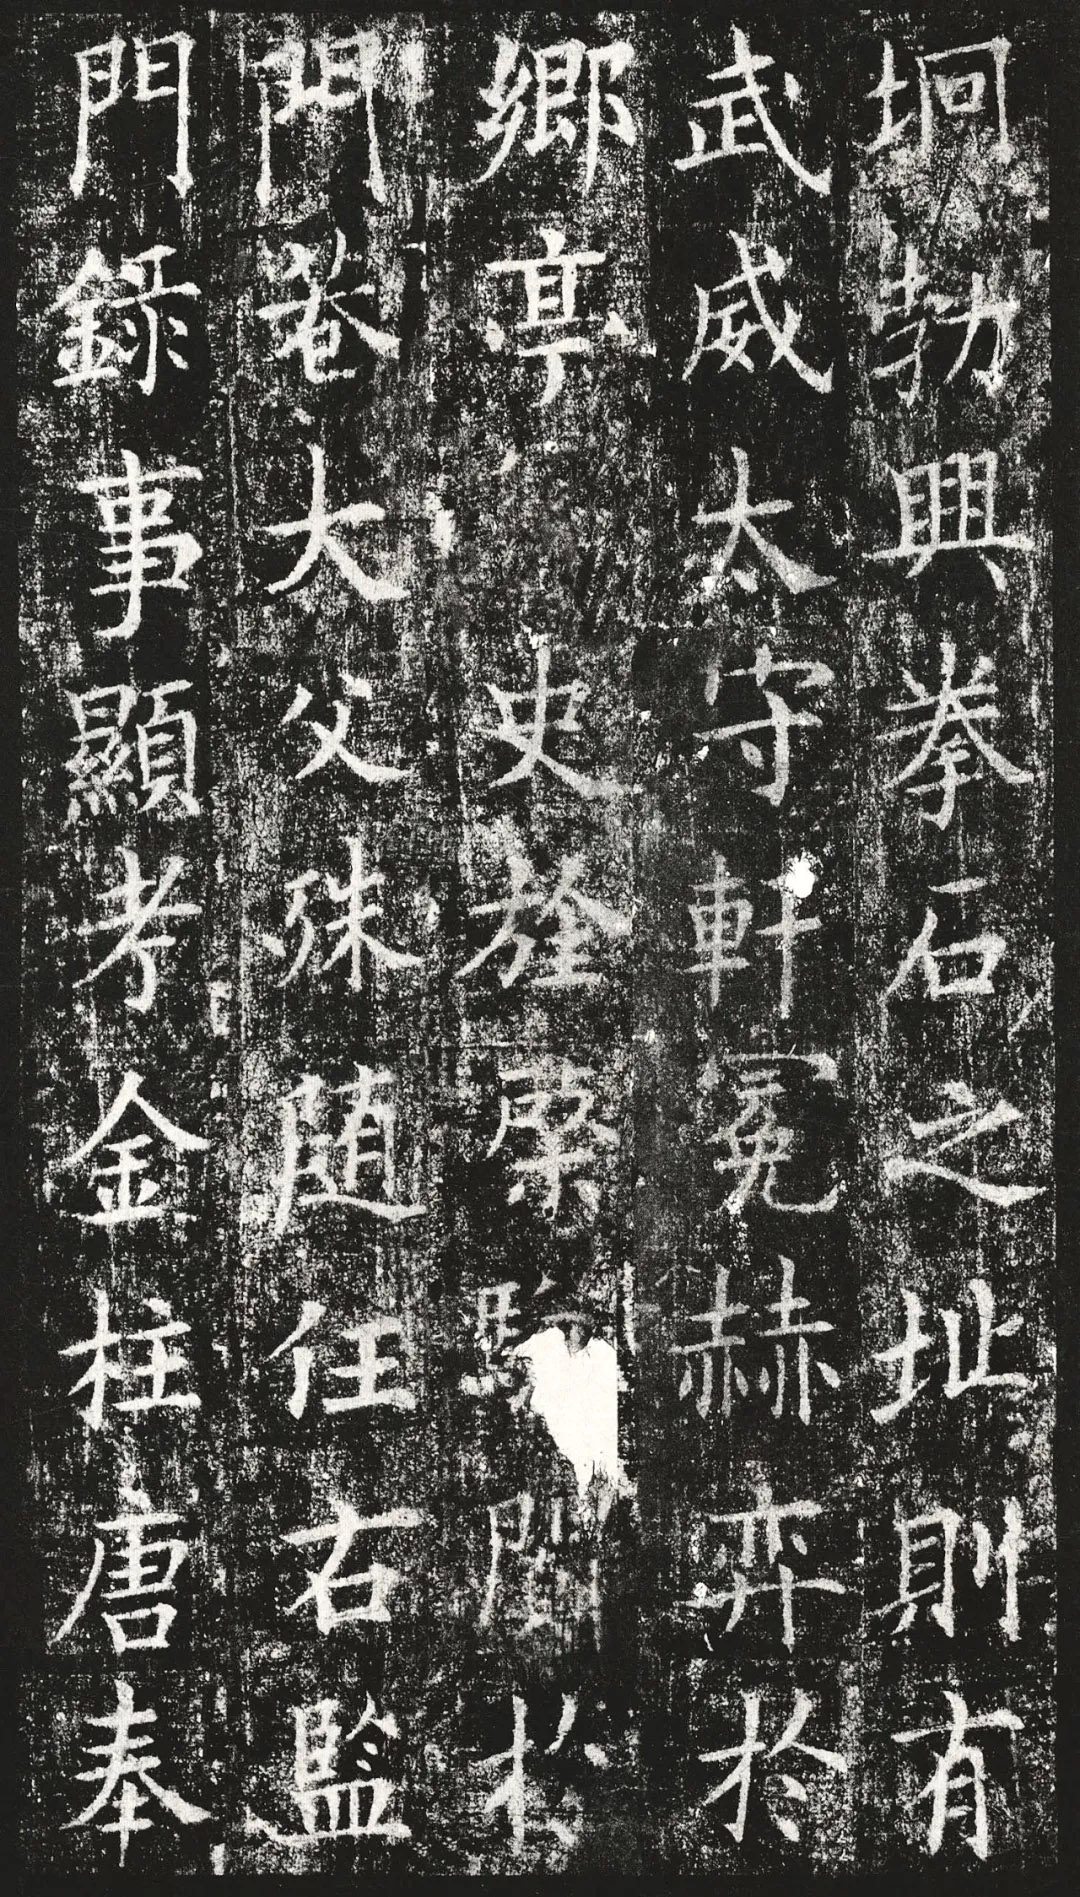 坰勃興拳石之址則有
武威太守軒冕赫弈於
鄉亭史旌棨於
門巷大父殊随任右監
門錄事顯考金柱唐奉